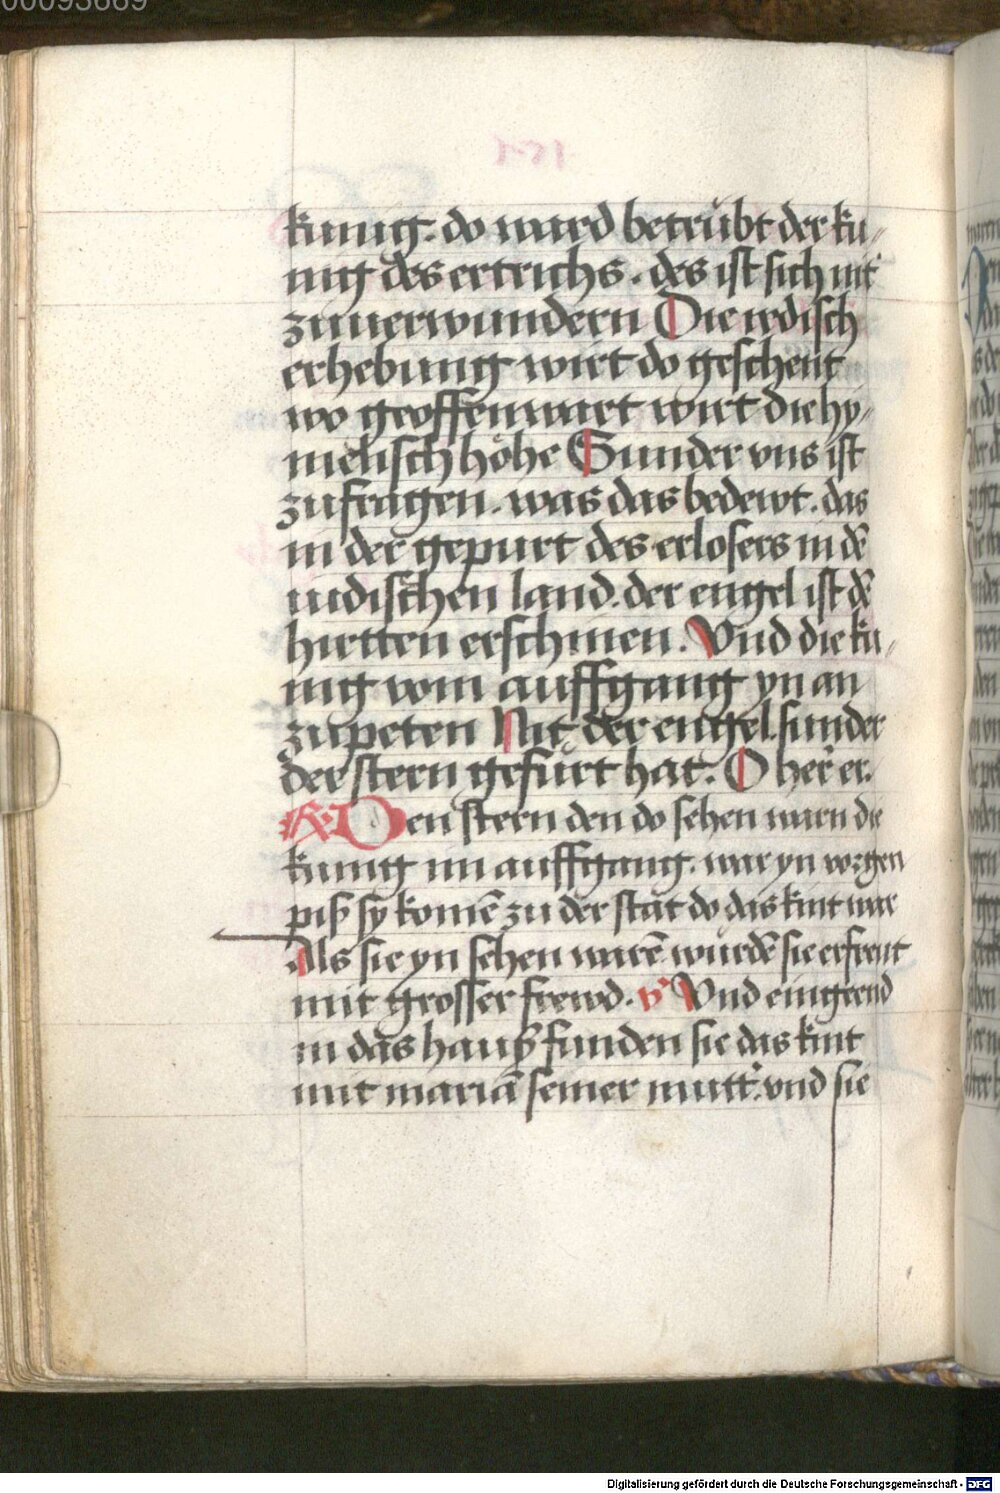 kunig. do ward betrübt der ku„
nig des ertrichs. des ist sich nit
zuuerwundern Die irdisch
erhebung wirt do geschent
wo geoffenwart wirt die hy„
melisch höhe Sunder vns ist
zufragen. was das bedewt. das
in der gepurt des erlosers in dē
iudischen land. der engel ist dē
hirtten erschinen. Vnd die ku„
nig vom auffgang yn an
zupeten Nit der engel. sunder
der stern gefürt hat. O her er.
℟. Den stern den do sehen warn die
kunig im auffgang. war yn vorgen
piß sy komē zu der stat do das kint war
Als sie yn sehen warē wurdē sie erfreut
mit grosser frewd. v̾ Vnd eingeend
in das hauß funden sie das kint
mit mariā seiner mutt̾. vnd sie
Digitalisierung gefördert durch die Deutsche Forschungsgemeinschaft - DFG